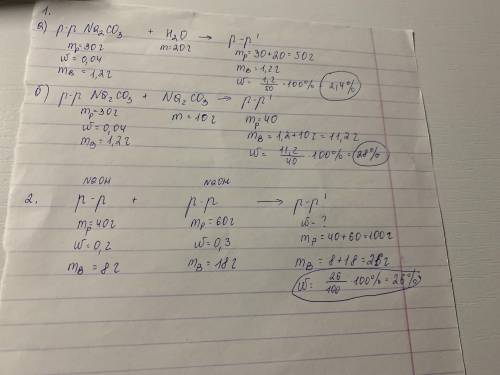 1.
а) р-р Na₂CO₃ + H₂O → р-р'
mр=30г m=20г mр=30+20=50г
w=0,04 mв=1,2г
mв=1,2г w= 1,2/50 · 100%= 2,4%
б) р-р Na₂CO₃ + Na₂CO₃ → р-р'
mр=30г m=10г mр=40
w=0,04 mв=1,2+10г=11,2г
mв=1,2г w= 11,2/40 · 100%= 28%
NaOH NaOH
2. р-р + р-р → р-р'
mр=40г mр=60г w-?
w=0,2 w=0,3 mр=40+60=100г
mв=8г mв=18г mв=8+18=26г
w= 26/100 · 100%=26%